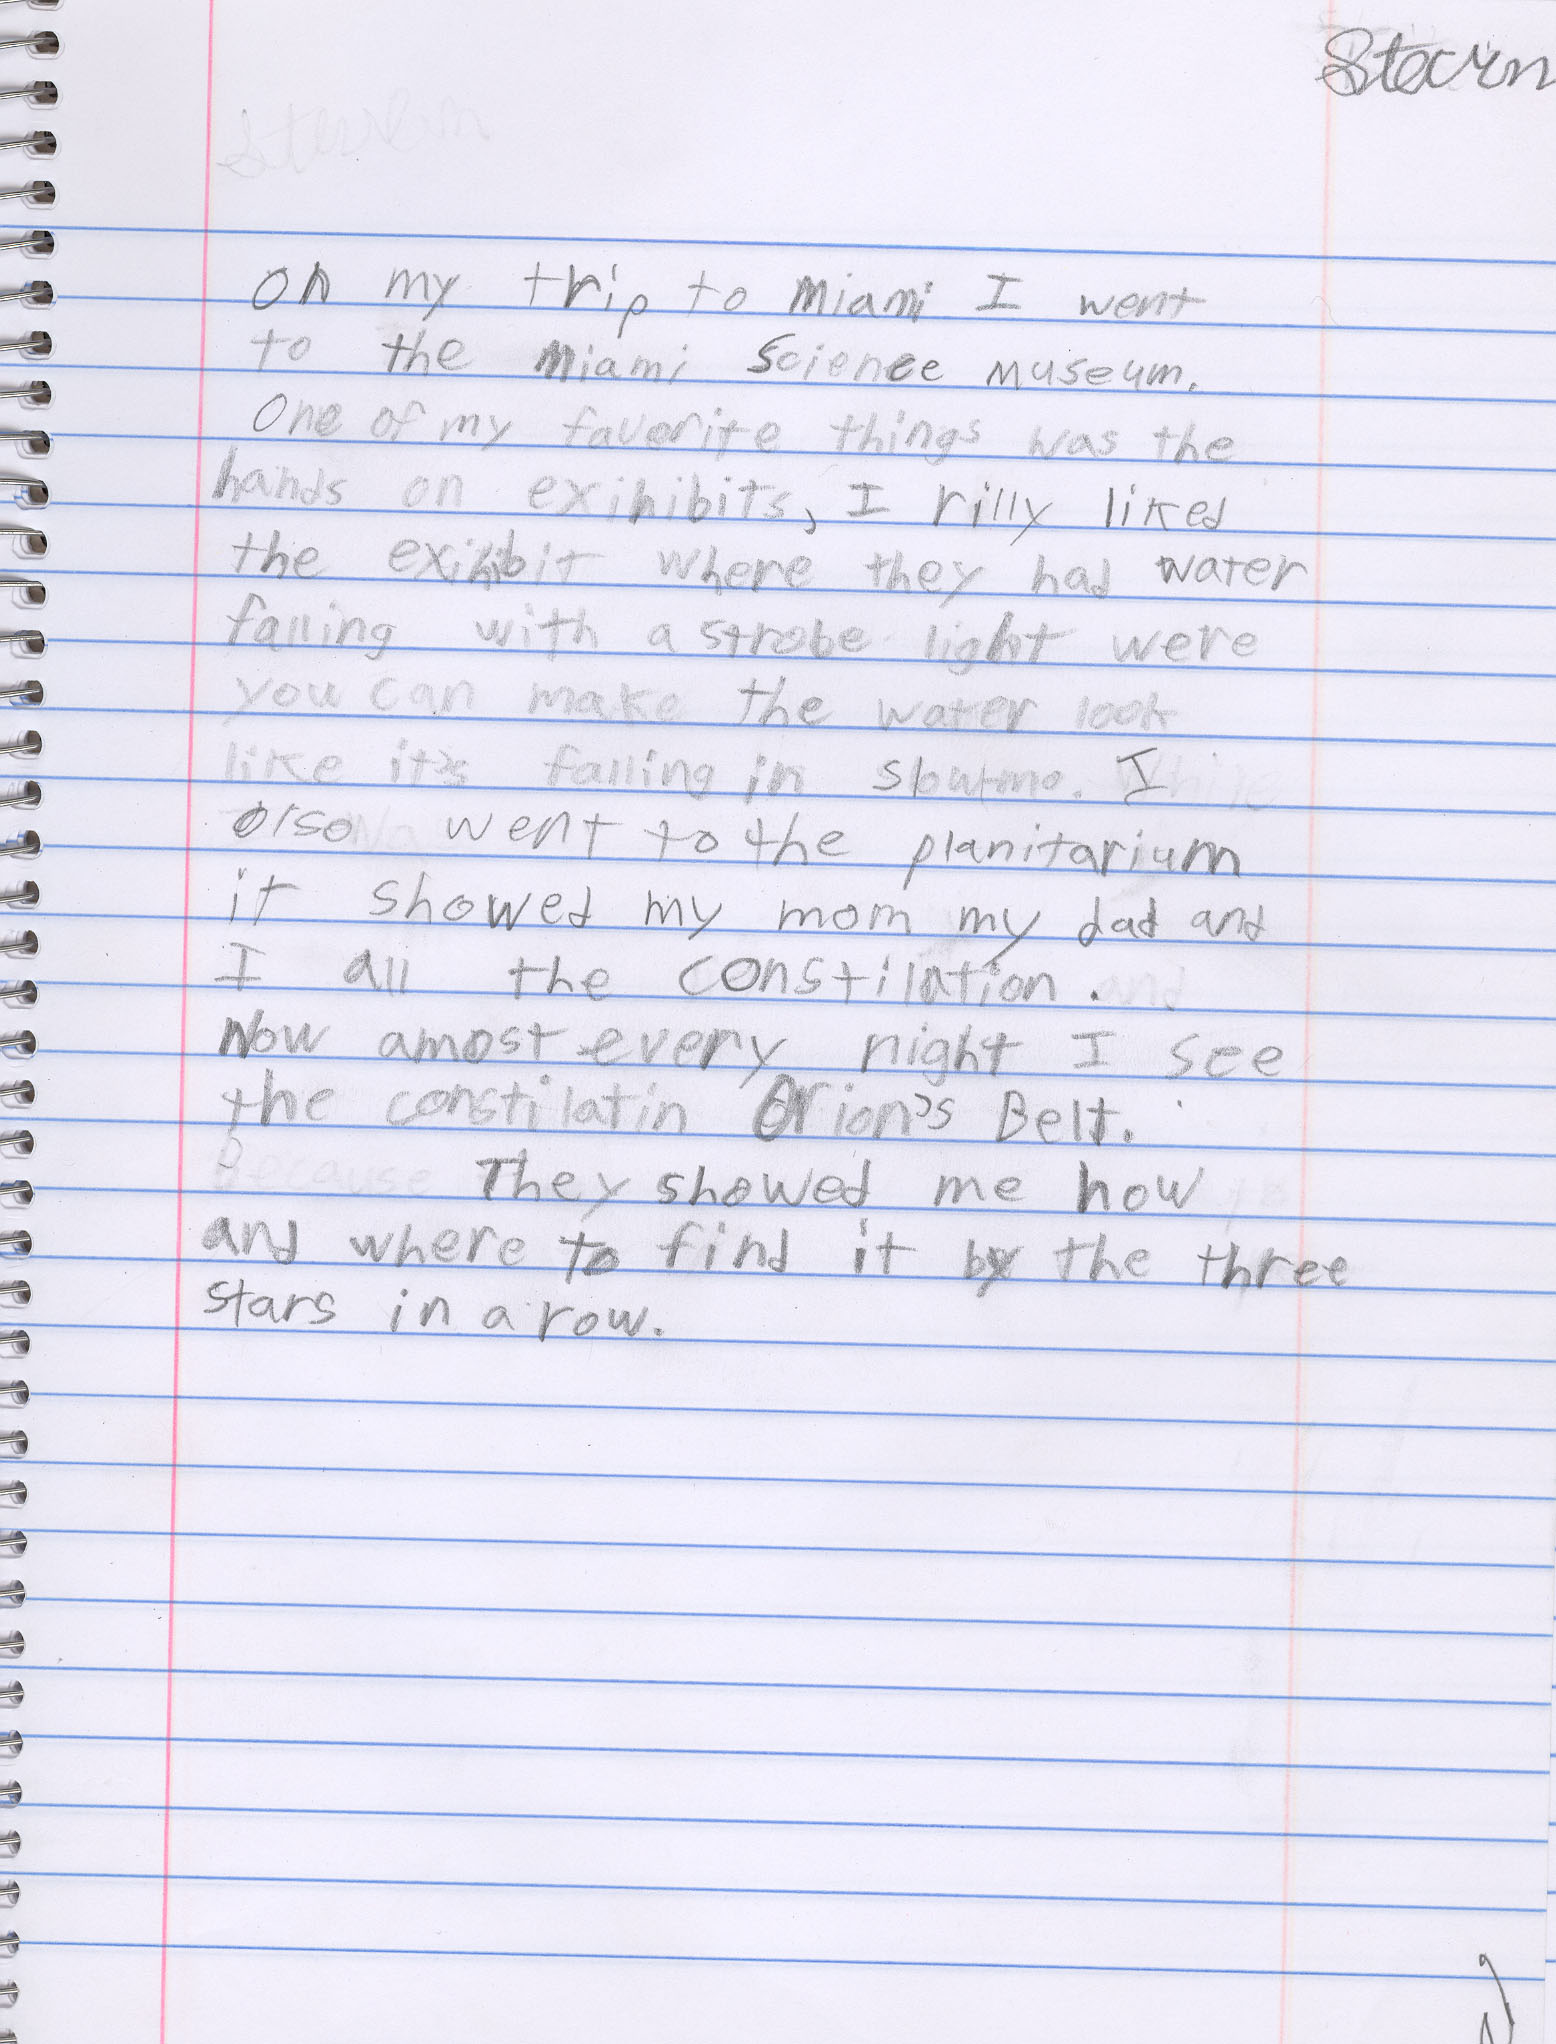 On my trip to Miami I went
to the Miami Science museum.
One of my favorite things was the
hands on exihibits, I rilly liked
the exihibit where they had water
falling with a strobe light were
you can make the water look
like it's falling in slow-mo. I
also went to the planitarium
it showed my mom my dad and
I all the constilation.
Now amost every night I see
the constilatin Orion's Belt.
They showed me how
and where to find it by the three
stars in a row.